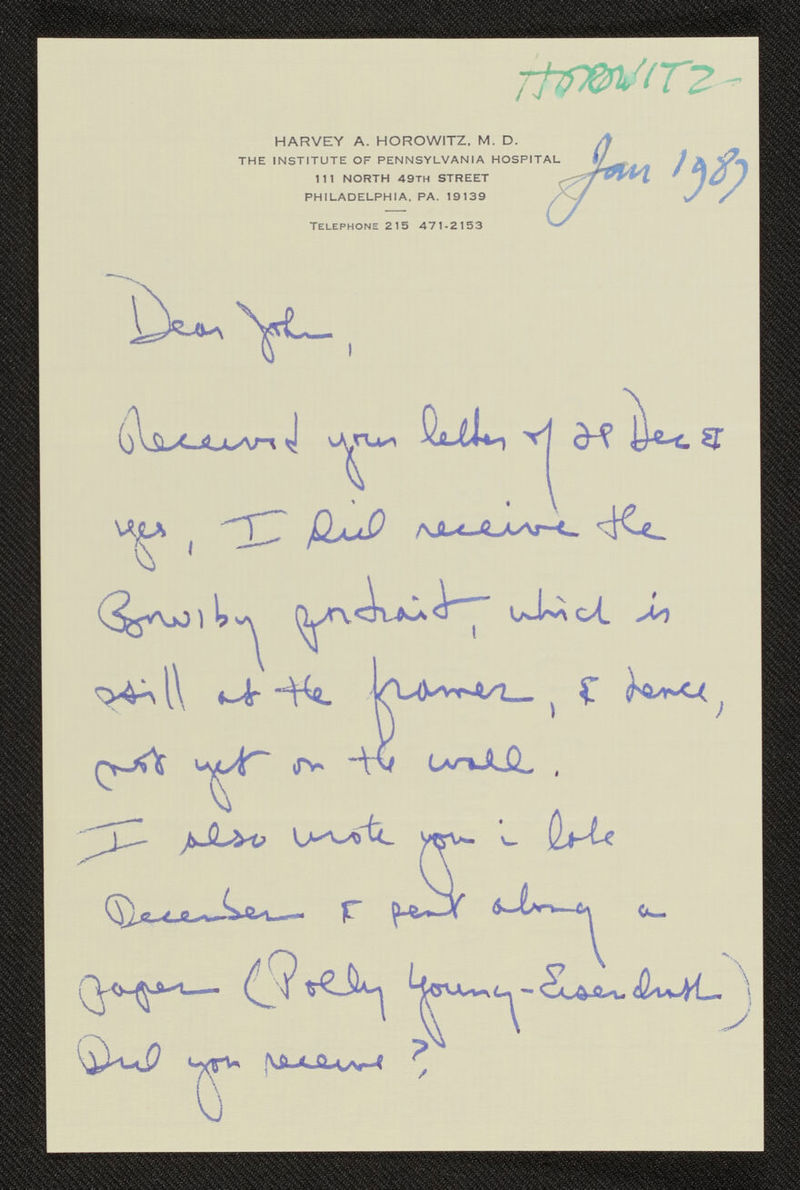 HOROWITZ
HARVEY A. HOROWITZ, M. D.
THE INSTITUTE OF PENNSYLVANIA HOSPITAL
111 NORTH 49TH STREET
PHILADELPHIA, PA. 19139
TELEPHONE 215 471-2153
Jan 1989
Dear John,
Received your letter of 28 Dec &
yes, I did receive the
Bowlby portrait, which is
still at the framer, & hence,
not yet on the wall.
I also wrote you in late
December & sent along a
paper (Polly Young-Eisendrath)
Did you receive?